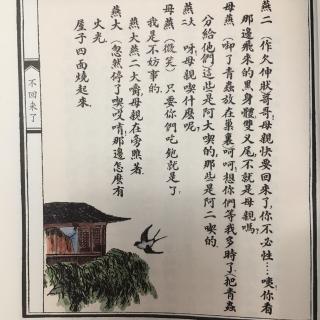 燕二 (作欠伸狀)哥哥,母親快要回來了,你不必性……咦,你看
那邊飛來的黑身體,雙叉尾,不就是母親嗎,
母燕 (啣了青蟲放在巢裏)呵呵,想你們等我多時了,(把青蟲
分給他們)這些是阿大喫的,那些是阿二喫的
燕大 呀母親喫什麼呢
母燕 (微笑)只要你們吃飽就是了,
我是不妨事的
燕大燕二大嚼,母親在旁照着
燕大 (忽然停了喫)哎唷,那邊怎麼有
火光
屋子四面燒起來
不回來了